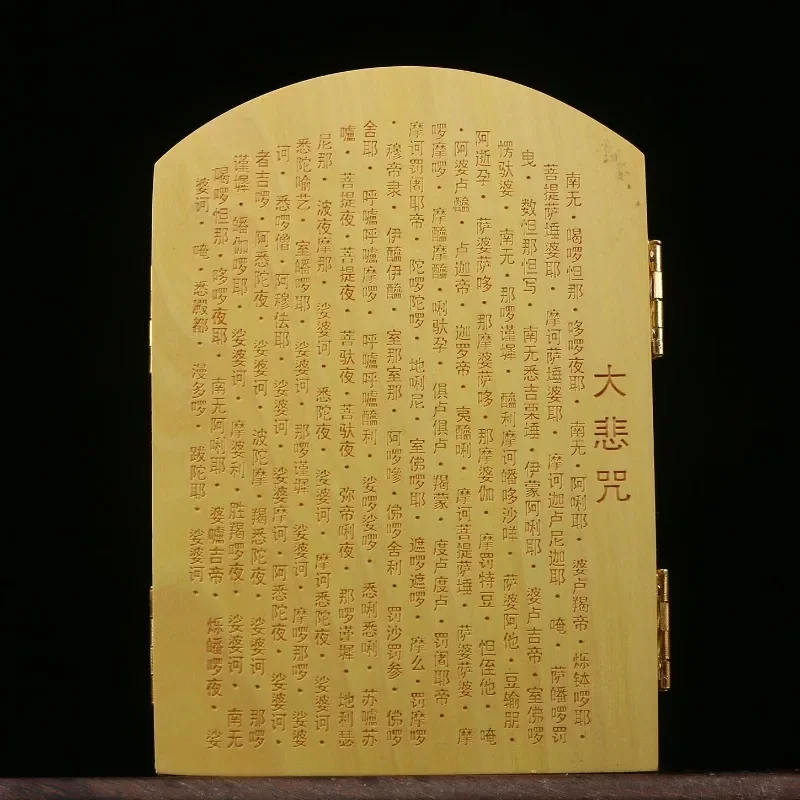 大悲咒
南无·喝啰怛那·哆啰夜耶·南无·阿唎耶·婆卢羯帝·烁钵啰耶·
菩提萨埵婆耶·摩诃萨埵婆耶·摩诃迦卢尼迦耶·唵·萨皤啰罚
曳·数怛那怛写·南无悉吉栗埵·伊蒙阿唎耶·婆卢吉帝·室佛啰
愣驮婆·南无·那啰谨墀·醯利摩诃皤哆沙咩·萨婆阿他·豆输朋·
阿逝孕·萨婆萨哆·那摩婆萨哆·那摩婆伽·摩罚特豆·怛侄他·唵
·阿婆卢醯·卢迦帝·迦罗帝·夷醯唎·摩诃菩提萨埵·萨婆萨婆·摩
啰摩啰·摩醯摩醯·唎驮孕·俱卢俱卢·羯蒙·度卢度卢·罚阇耶帝·
摩诃罚阇耶帝·陀啰陀啰·地唎尼·室佛啰耶·遮啰遮啰·摩么·罚摩啰
·穆帝隶·伊醯伊醯·室那室那·阿啰嘇·佛啰舍利·罚沙罚参·佛啰
舍耶·呼嚧呼嚧摩啰·呼嚧呼嚧醯利·娑啰娑啰·悉唎悉唎·苏嚧苏
嚧·菩提夜·菩提夜·菩驮夜·菩驮夜·弥帝唎夜·那啰谨墀·地利瑟
尼那·波夜摩那·娑婆诃·悉陀夜·娑婆诃·摩诃悉陀夜·娑婆诃·
悉陀喻艺·室皤啰耶·娑婆诃·那啰谨墀·娑婆诃·摩啰那啰·娑婆
诃·悉啰僧·阿穆佉耶·娑婆诃·娑婆摩诃·阿悉陀夜·娑婆诃·
者吉啰·阿悉陀夜·娑婆诃·波陀摩·羯悉陀夜·娑婆诃·那啰
谨墀·皤伽啰耶·娑婆诃·摩婆利·胜羯啰夜·娑婆诃·南无
喝啰怛那·哆啰夜耶·南无阿唎耶·婆嚧吉帝·烁皤啰夜·娑
婆诃·唵·悉殿都·漫多啰·跋陀耶·娑婆诃·